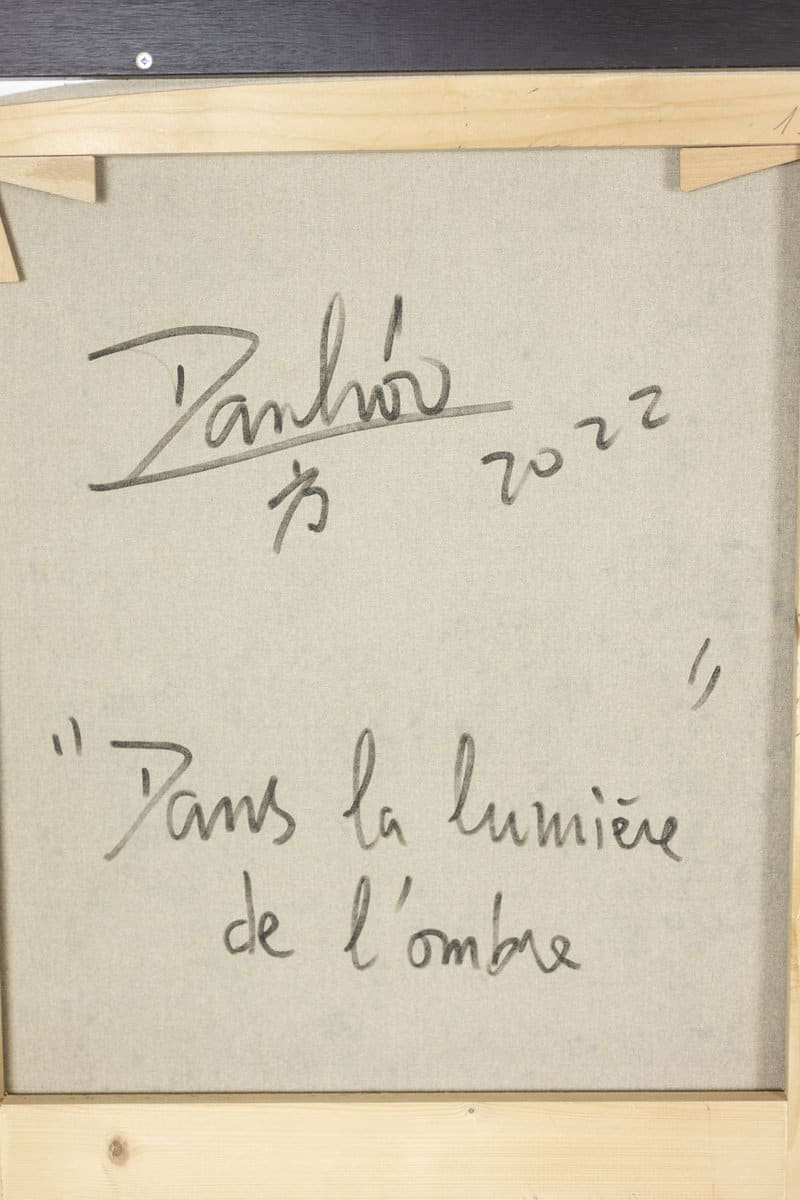 Danhôo
2022
" Dans la lumière
de l'ombre "